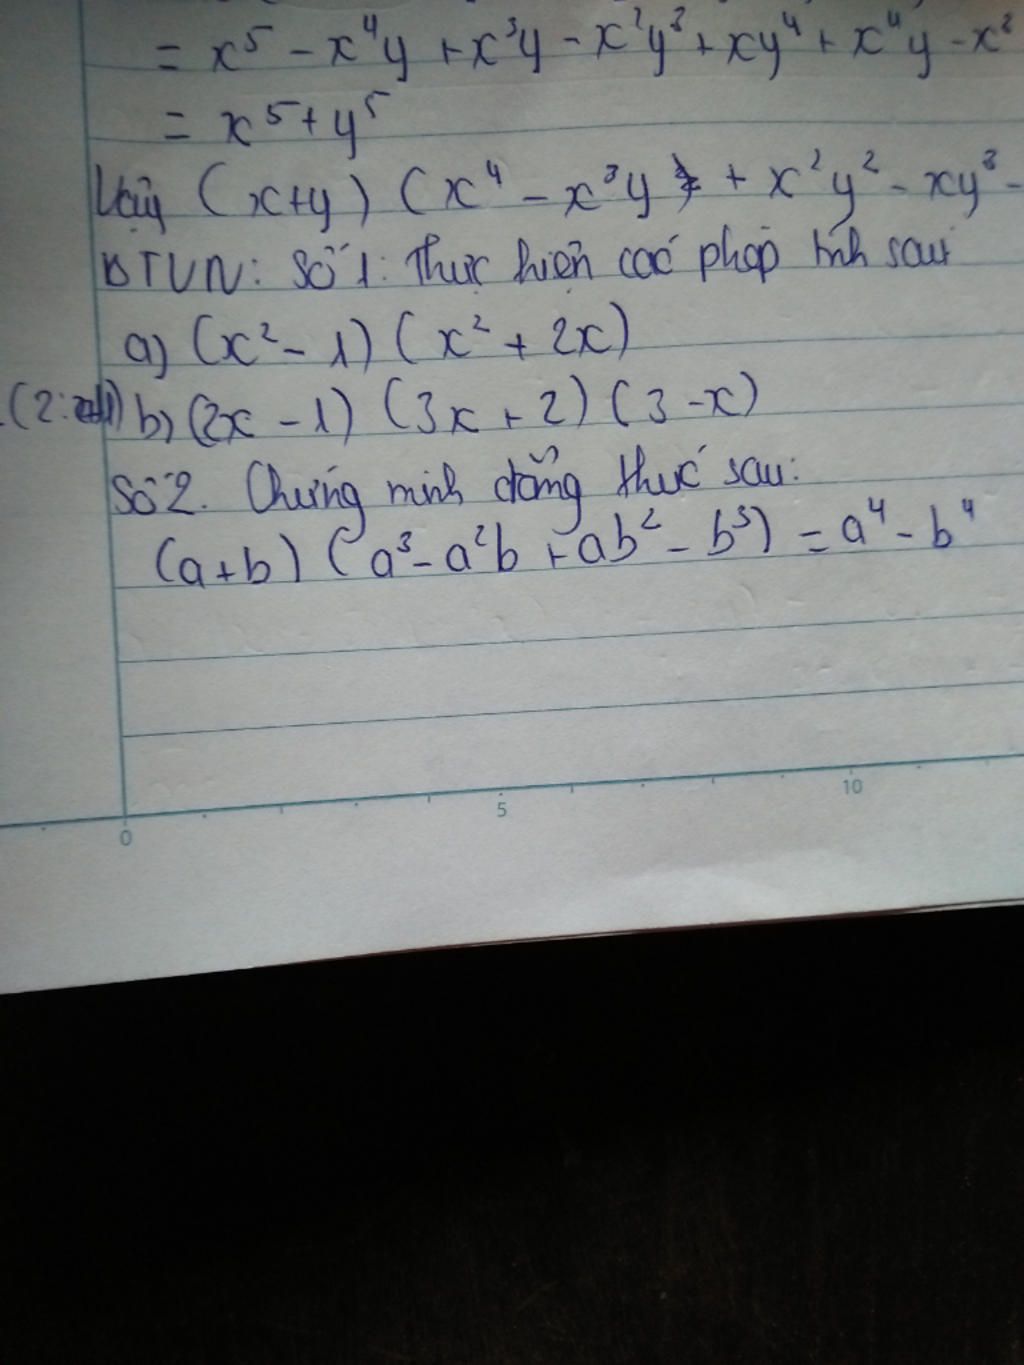 = x⁵ - x⁴y + x³y - x²y³ + xy⁴ + x⁴y - x²
= x⁵ + y⁵
Vậy (x+y) (x⁴ - x³y + x²y² - xy³ -
BTVN: Số 1: Thực hiện các phép tính sau
a) (x² - 1) (x² + 2x)
b) (2x - 1) (3x + 2) (3 - x)
Số 2. Chứng minh đẳng thức sau:
(a+b) (a³ - a²b + ab² - b³) = a⁴ - b⁴
0 5 10